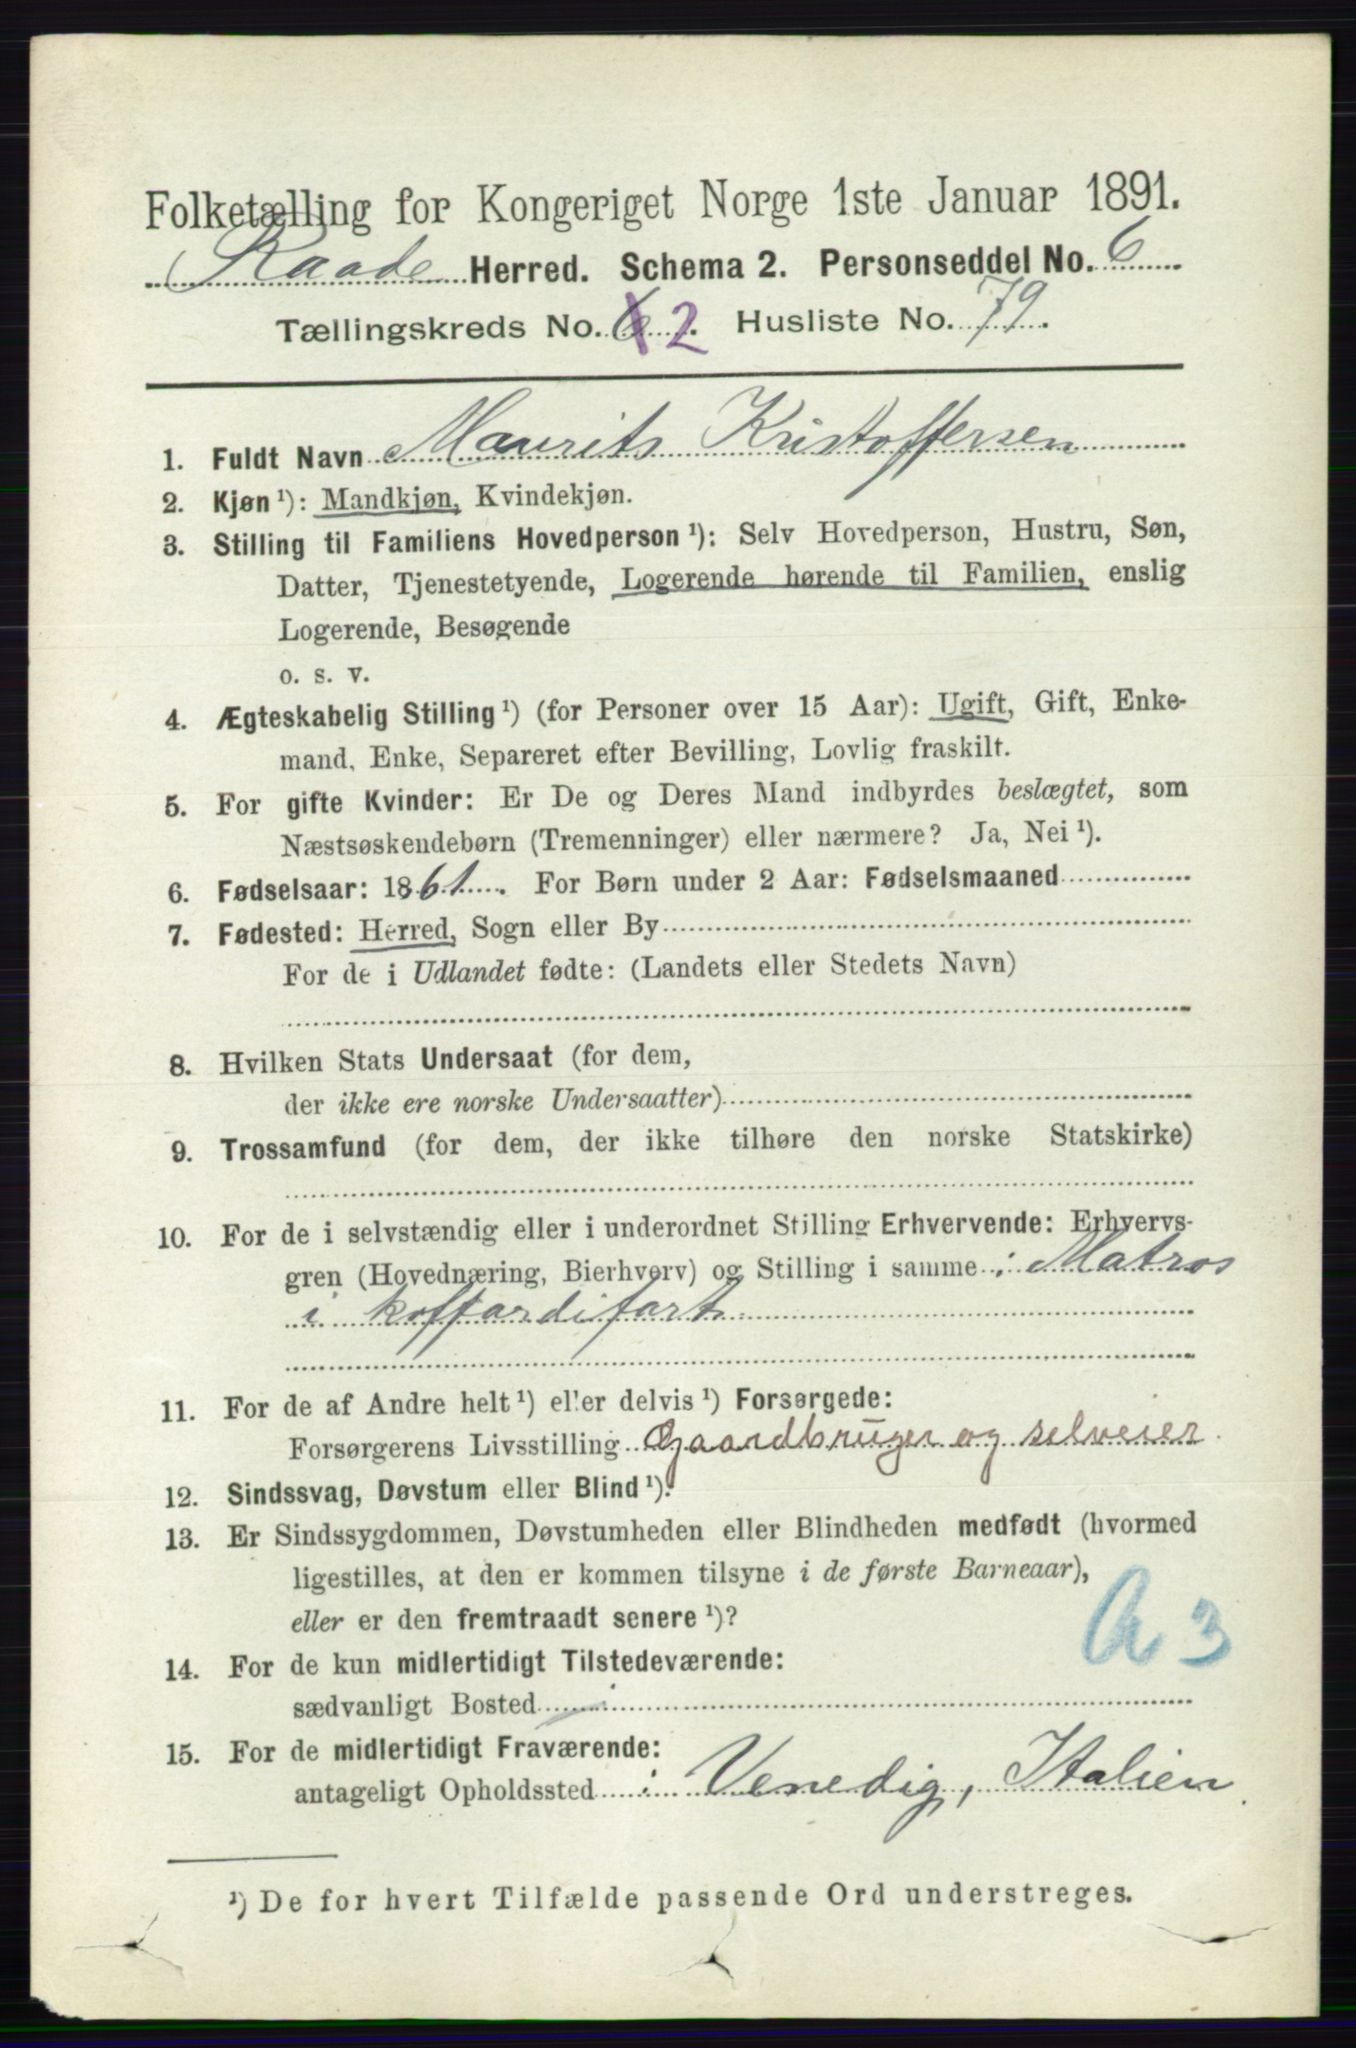 Folketælling for Kongeriget Norge 1ste Januar 1891.
Raade Herred. Schema 2. Personseddel No. 6
Tællingskreds No. 6 2. Husliste No. 79.
1. Fuldt Navn Maurits Kristoffersen
2. Kjøn ¹): Mandkjøn, Kvindekjøn.
3. Stilling til Familiens Hovedperson ¹): Selv Hovedperson, Hustru, Søn,
Datter, Tjenestetyende, Logerende hørende til Familien, enslig
Logerende, Besøgende
o. s. v.
4. Ægteskabelig Stilling ¹) (for Personer over 15 Aar): Ugift, Gift, Enke-
mand, Enke, Separeret efter Bevilling, Lovlig fraskilt.
5. For gifte Kvinder: Er De og Deres Mand indbyrdes beslægtet, som
Næstsøskendebørn (Tremenninger) eller nærmere? Ja, Nei ¹).
6. Fødselsaar: 1861. For Børn under 2 Aar: Fødselsmaaned
7. Fødested: Herred, Sogn eller By
For de i Udlandet fødte: (Landets eller Stedets Navn)
8. Hvilken Stats Undersaat (for dem,
der ikke ere norske Undersaatter)
9. Trossamfund (for dem, der ikke tilhøre den norske Statskirke)
10. For de i selvstændig eller i underordnet Stilling Erhvervende: Erhvervs-
gren (Hovednæring, Bierhverv) og Stilling i samme : Matros
i koffardifart
11. For de af Andre helt ¹) eller delvis ¹) Forsørgede:
Forsørgerens Livsstilling Gaardbruger og selveier
12. Sindssvag, Døvstum eller Blind ¹).
13. Er Sindssygdommen, Døvstumheden eller Blindheden medfødt (hvormed
ligestilles, at den er kommen tilsyne i de første Barneaar),
eller er den fremtraadt senere ¹)?
A 3
14. For de kun midlertidigt Tilstedeværende:
sædvanligt Bosted
15. For de midlertidigt Fraværende:
antageligt Opholdssted i Venedig, Italien.
¹) De for hvert Tilfælde passende Ord understreges.